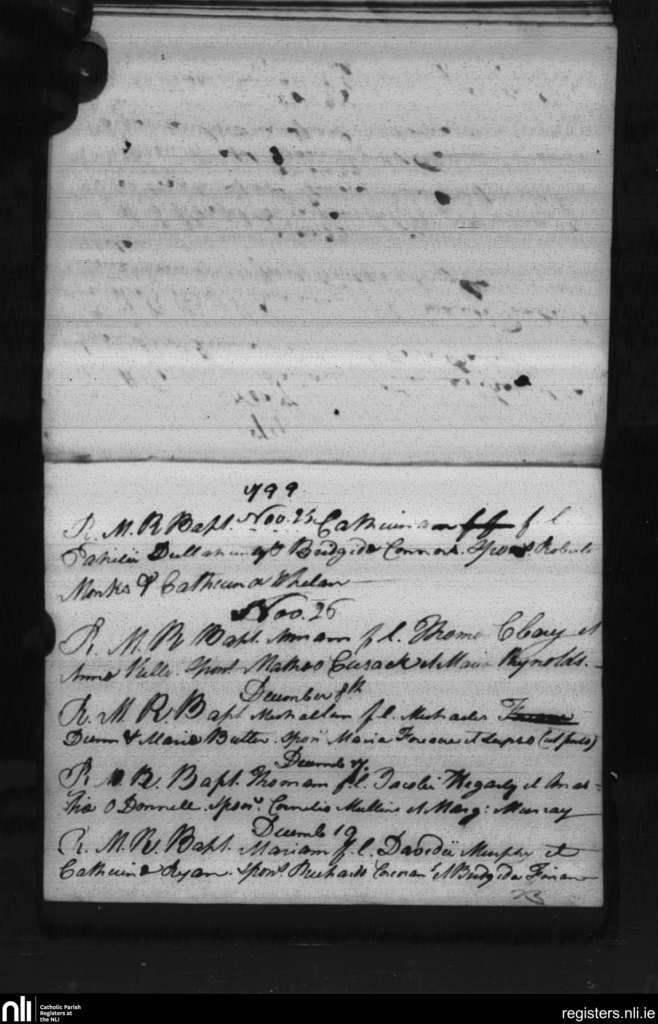 799
R. M. R Bapt. Nov. 24 Catherinam ff f l
Patricii Dullahunty & Bridgida Connors. Spons Roberto
Monks & Catherina Whelan
Nov. 26
R. M. R Bapt. Annam f. l. Thome Clary et
Anna Kelly. Spons. Matheo Cusack et Maria Reynolds.
December 8th
R. M. R. Bapt Michaelem f.l. Michaelis
Dunn & Maria Butler. Spons Maria Finane et
Decemb
R. M. R. Bapt. Thomam f.l. Jacobi Hegarty et Anas-
tia O Donnell. Spons. Cornelio Mullins et Marg: Murray
Decemb 19
R. M. R. Bapt. Mariam f. l. Davidii Murphy et
Catherina Ryan. Spons. Richardo et Bridgida Finane
nli
Catholic Parish
Registers at
the NLI
registers.nli.ie